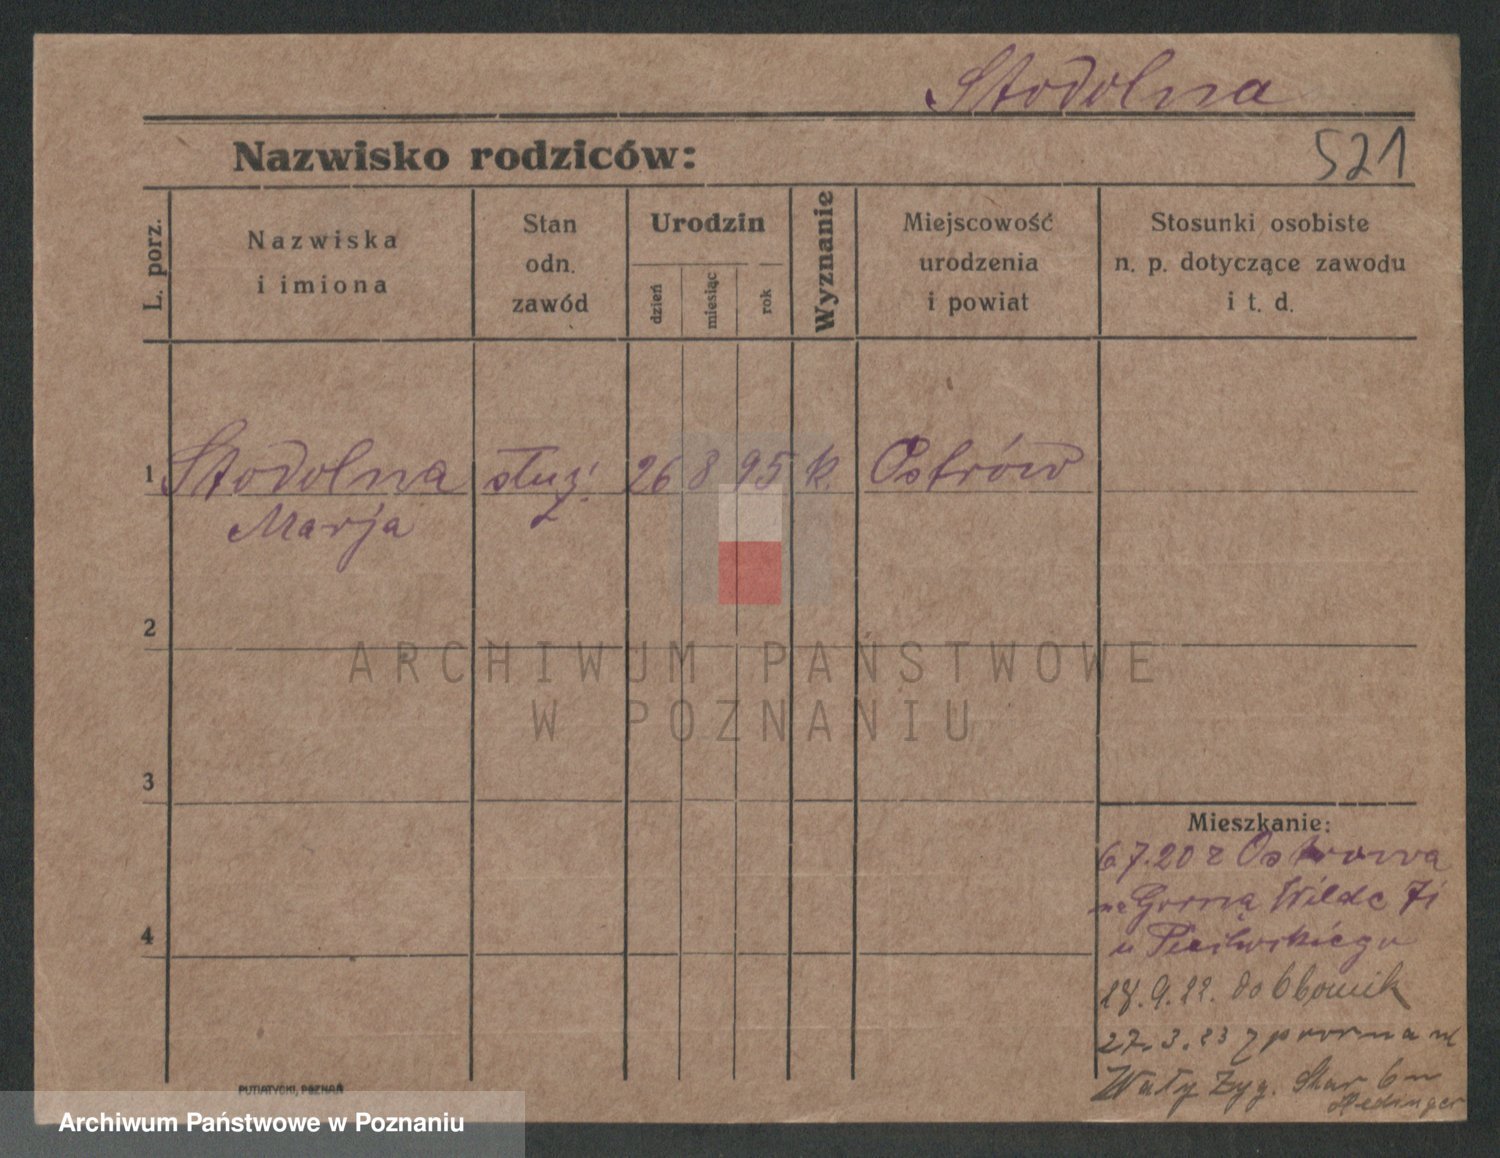 Stodolna
521
Nazwisko rodziców:
L. porz.
Nazwiska
i imiona
Stan
odn.
zawód
Urodzin
dzień
miesiąc
rok
Wyznanie
Miejscowość
urodzenia
i powiat
Stosunki osobiste
n. p. dotyczące zawodu
i t. d.
1 Stodolna służ. 26 8 95 k. Ostrów
Marja
2
ARCHIWUM PAŃSTWOWE
W POZNANIU
3
Mieszkanie:
6.7.20 z Ostrowa
na Górną Wildę 71
u
4
do Obornik
27.3.23 z
Wały Zyg. Star
PUTIATYCKI, POZNAŃ
Archiwum Państwowe w Poznaniu